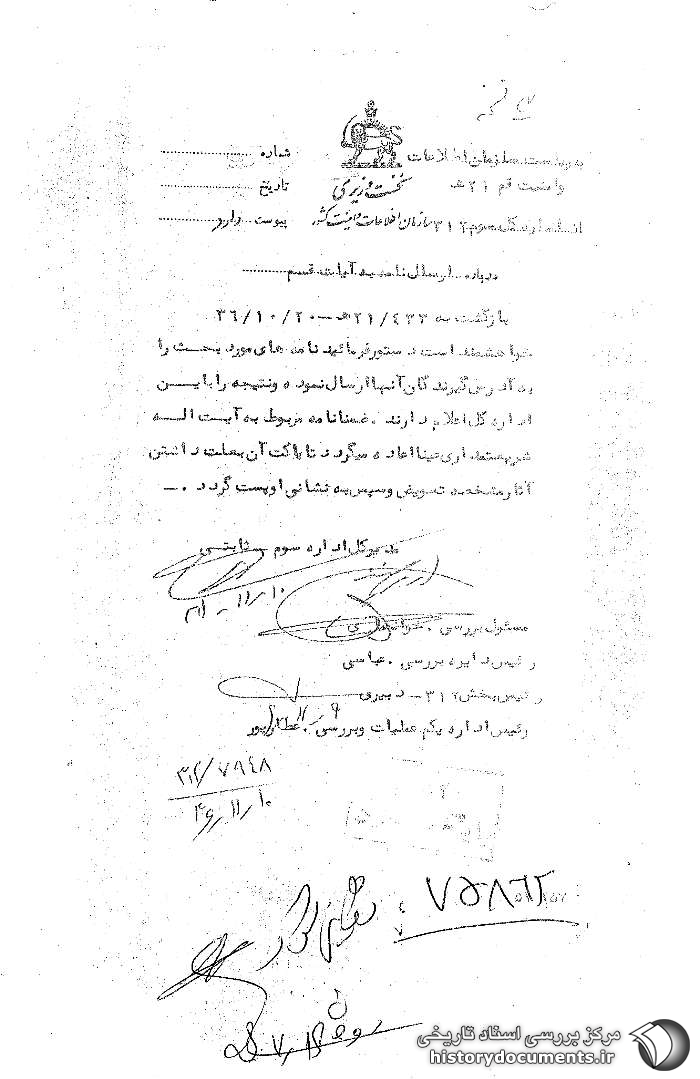 به ریاست سازمان اطلاعات
و امنیت قم ۲۱هـ
نخست وزیری
شماره
تاریخ
از اداره کل سوم ۳۱۲ سازمان اطلاعات و امنیت کشور
پیوست دارد
درباره ارسال نامه به آیات قسم
بازگشت به ۲۱/۴۳۳هـ - ۳۶/۱۰/۲۰
خواهشمند است دستور فرمائید نامه های مورد بحث را
به آدرس گیرندگان آنها ارسال نموده و نتیجه را باین
اداره کل اعلام دارند. ضمنا نامه مربوط به آیت اله
شریعتمداری عینا اعاده میگردد تا پاکت آن بعلت داشتن
آثار مشخصه تعویض و سپس به نشانی او پست گردد. ـ
مدیر کل اداره سوم ثابتی
مسئول بررسی.
رئیس دایره بررسی. عباسی
رئیس بخش ۳۱۲ - دبیری
رئیس اداره یکم عملیات و بررسی. عطارپور
۳۱۲/۷۹۴۸
۳۶/۱۱/۱۰
۷۵۸۶۲
مرکز بررسی اسناد تاریخی
historydocuments.ir